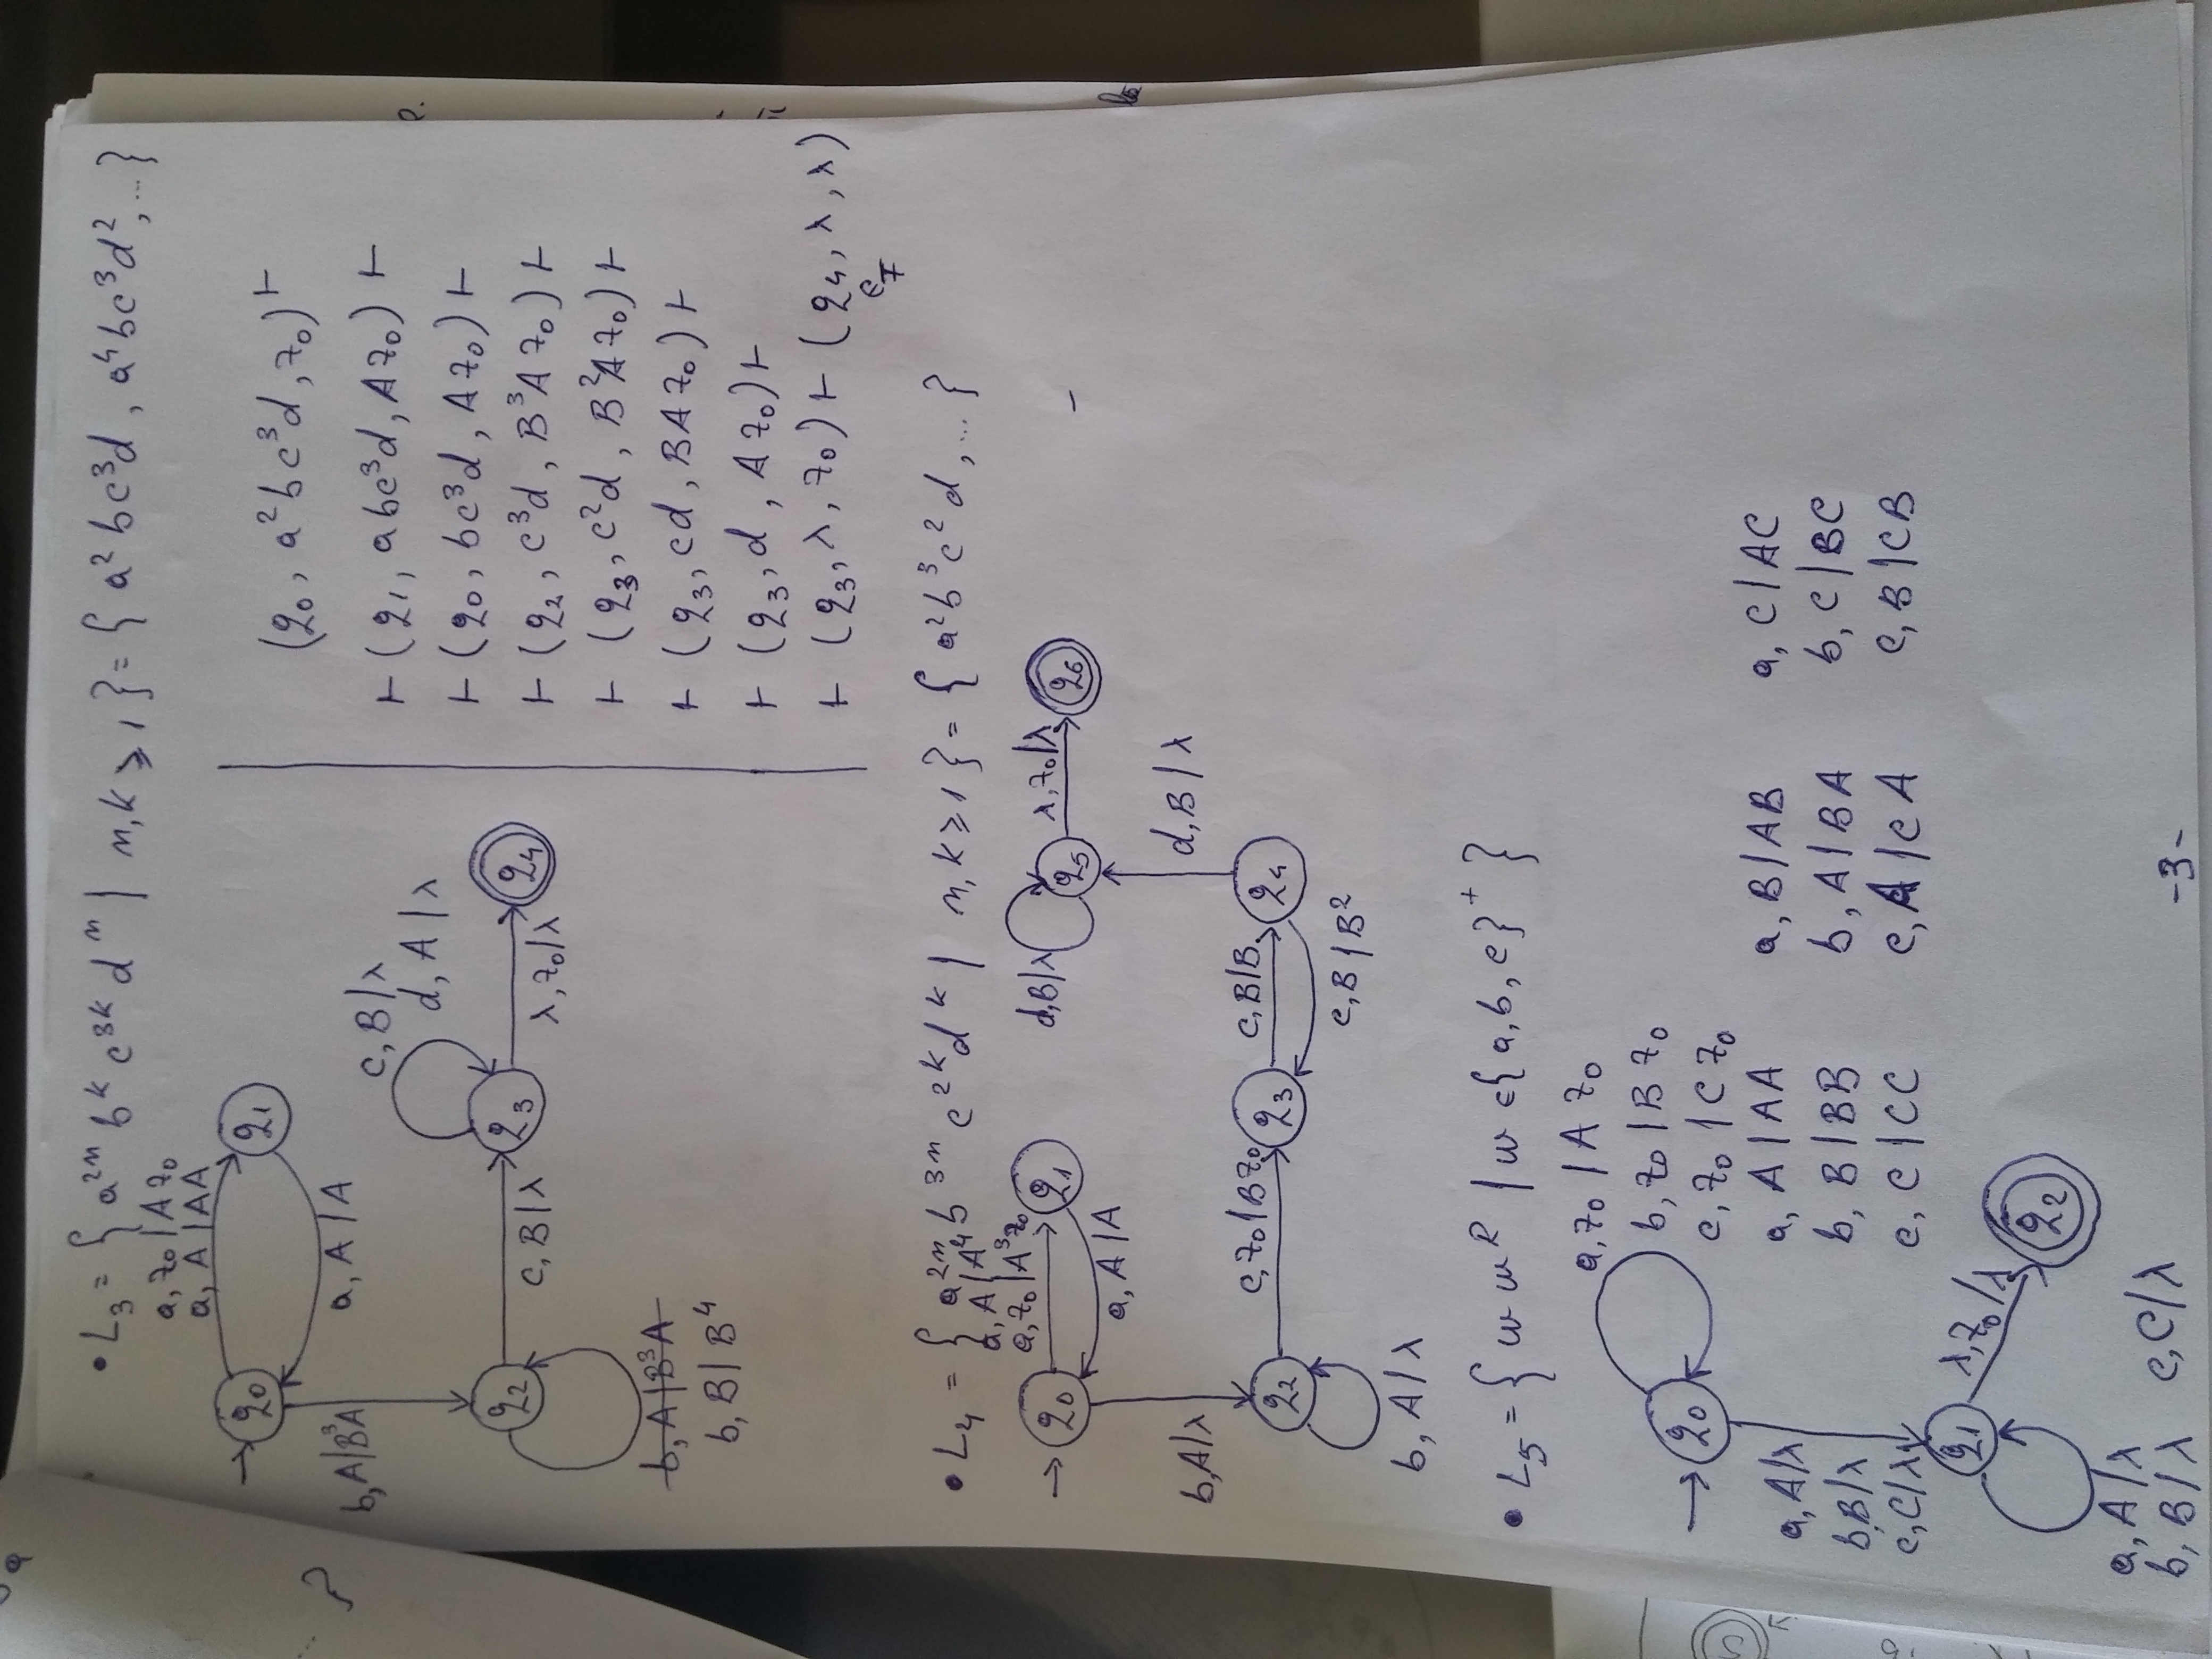 • L₃ = { a²ⁿ bᵏ c³ᵏ dⁿ | n,k ⩾ 1 } = { a² b c³ d , a⁴ b c³ d² , ... }
a, z₀ | A z₀
a, A | AA
→ q₀ q₁
a, A | A
b, A | B³A
c, B | λ
d, A | λ
q₂ q₃ q₄
c, B | λ
λ, z₀ | λ
b, A | B³A
b, B | B⁴
(q₀, a² b c³ d, z₀) ⊢
⊢ (q₁, a b c³ d, A z₀) ⊢
⊢ (q₀, b c³ d, A z₀) ⊢
⊢ (q₂, c³ d, B³ A z₀) ⊢
⊢ (q₃, c² d, B² A z₀) ⊢
⊢ (q₃, c d, B A z₀) ⊢
⊢ (q₃, d, A z₀) ⊢
⊢ (q₃, λ, z₀) ⊢ (q₄, λ, λ)
∈ F
• L₄ = { a²ⁿ b³ⁿ c²ᵏ dᵏ | n,k ⩾ 1 } = { a² b³ c² d , ... }
a, A | A⁴
a, z₀ | A³ z₀
→ q₀ q₁
a, A | A
d, B | λ
q₅
λ, z₀ | λ
q₆
b, A | λ
d, B | λ
q₂
c, z₀ | B z₀
q₃
c, B | B
q₄
c, B | B²
b, A | λ
• L₅ = { w wᴿ | w ∈ {a, b, c}⁺ }
→ q₀
a, z₀ | A z₀
b, z₀ | B z₀
c, z₀ | C z₀
a, A | AA a, B | AB a, C | AC
b, B | BB b, A | BA b, C | BC
c, C | CC c, A | CA c, B | CB
a, A | λ
b, B | λ
c, C | λ
q₁
λ, z₀ | λ
q₂
a, A | λ
b, B | λ c, C | λ
-3-